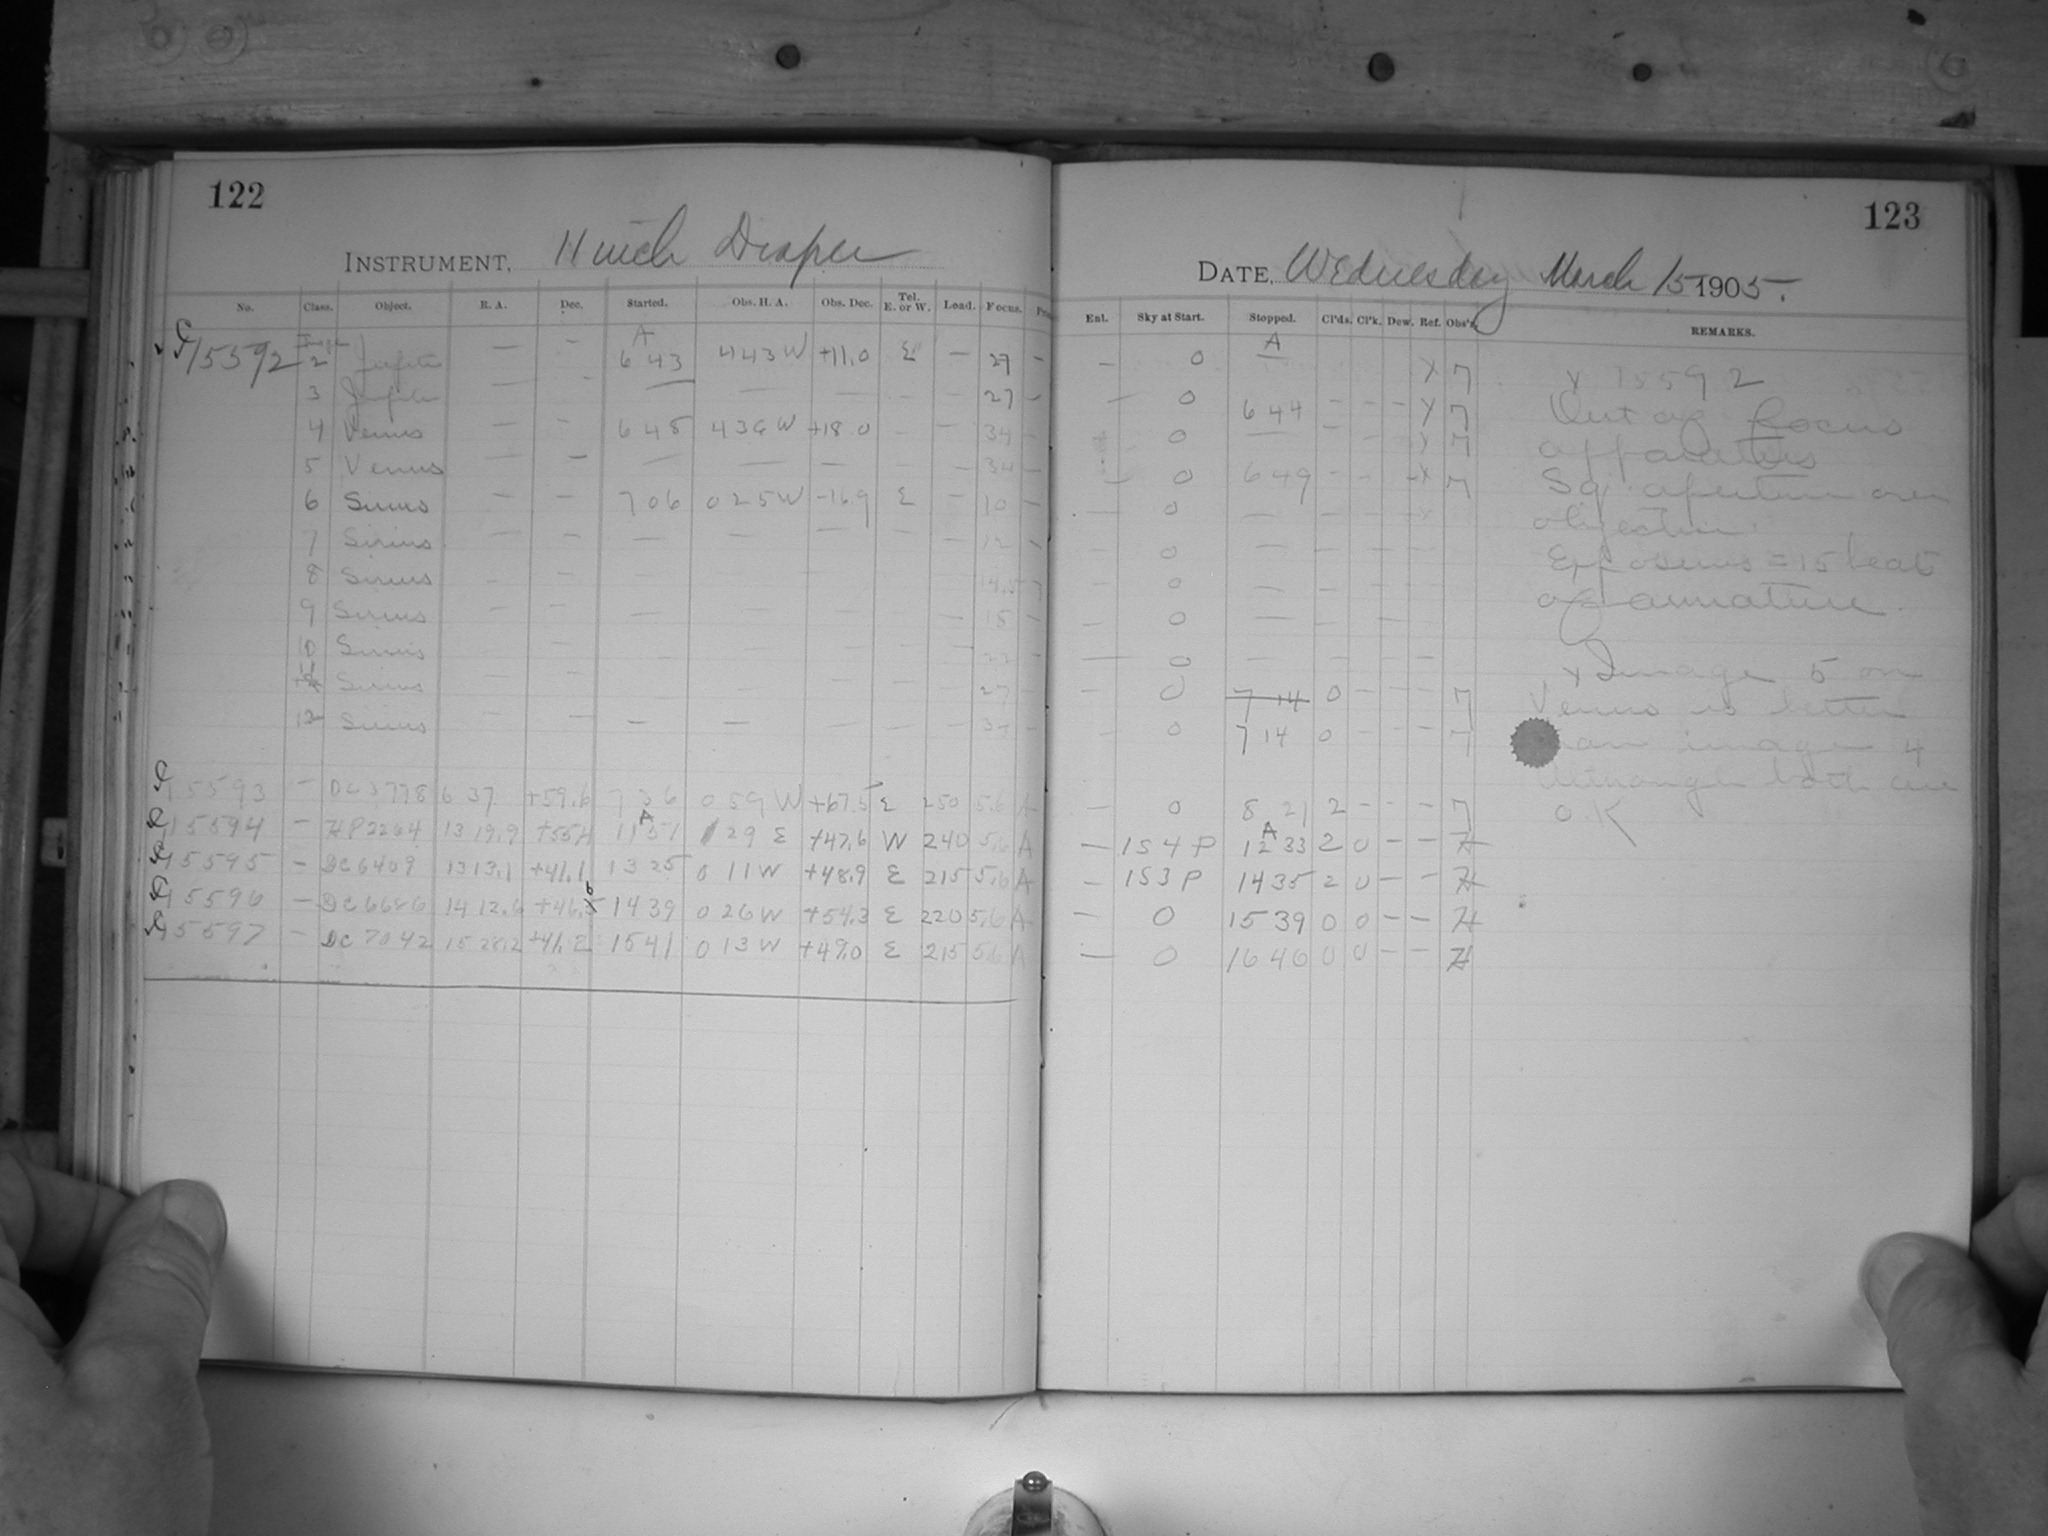 122
INSTRUMENT, 11 inch Draper
No. Class. Object. R. A. Dec. Started. Obs. H. A. Obs. Dec. Tel. E. or W. Load. Focus.
15592 Image 2 Jupiter — — A 6 43 4 43 W +11.0 E — 27 —
3 Jupiter — — — — — — — 27 —
4 Venus — — 6 48 4 36 W +18.0 — — 34 —
5 Venus — — — — — — — 34 —
6 Sirius — — 7 06 0 25 W -16.9 E — 10 —
7 Sirius — — — — — — — 12 —
8 Sirius — — 14.5
9 Sirius — — — — — — — 18 —
10 Sirius — — — — — —
Sirius — — — — — — — 27 —
12 Sirius — — — — — — —
15593 — DC 3778 6 37 +59.6 7 36 0 59 W +67.5 E 250 5.6 A
15594 — HP 2264 13 19.9 A 11 51 1 29 E +47.6 W 240 5.6 A
15595 — DC 6409 13 13.1 +41.1 13 25 0 11 W +48.9 E 215 5.6 A
15596 — DC 6686 14 12.6 +46.6 14 39 0 26 W +54.3 E 220 5.6 A
15597 — DC 7042 15 28.2 15 41 0 13 W +49.0 E 215 5.6 A
123
DATE, Wednesday March 15 1905.
Enl. Sky at Start. Stopped. Cl'ds. Cl'k. Dew. Ref. Obs'r. REMARKS.
— 0 A — x 7 x 15592
— 0 6 44 — — — x 7 Out of focus
0 — x 7 apparatus
— 0 6 49 — — x 7 Sq. aperture over
— 0 — — — — x objective.
— 0 — — — — — Exposures = 15 beats
— 0 — — — — of armature.
— 0 — — — —
— 0 — — — — — x Image 5 on
— 0 7 14 0 — — — 7 Venus is better
— 0 7 14 0 — — — 7 image 4
although both are
— 0 8 21 2 — — — 7 O.K
— 1S4P A 12 33 2 0 — — H
— 1S3P 14 35 2 0 — — H
— 0 15 39 0 0 — — H
— 0 16 46 0 0 — — H